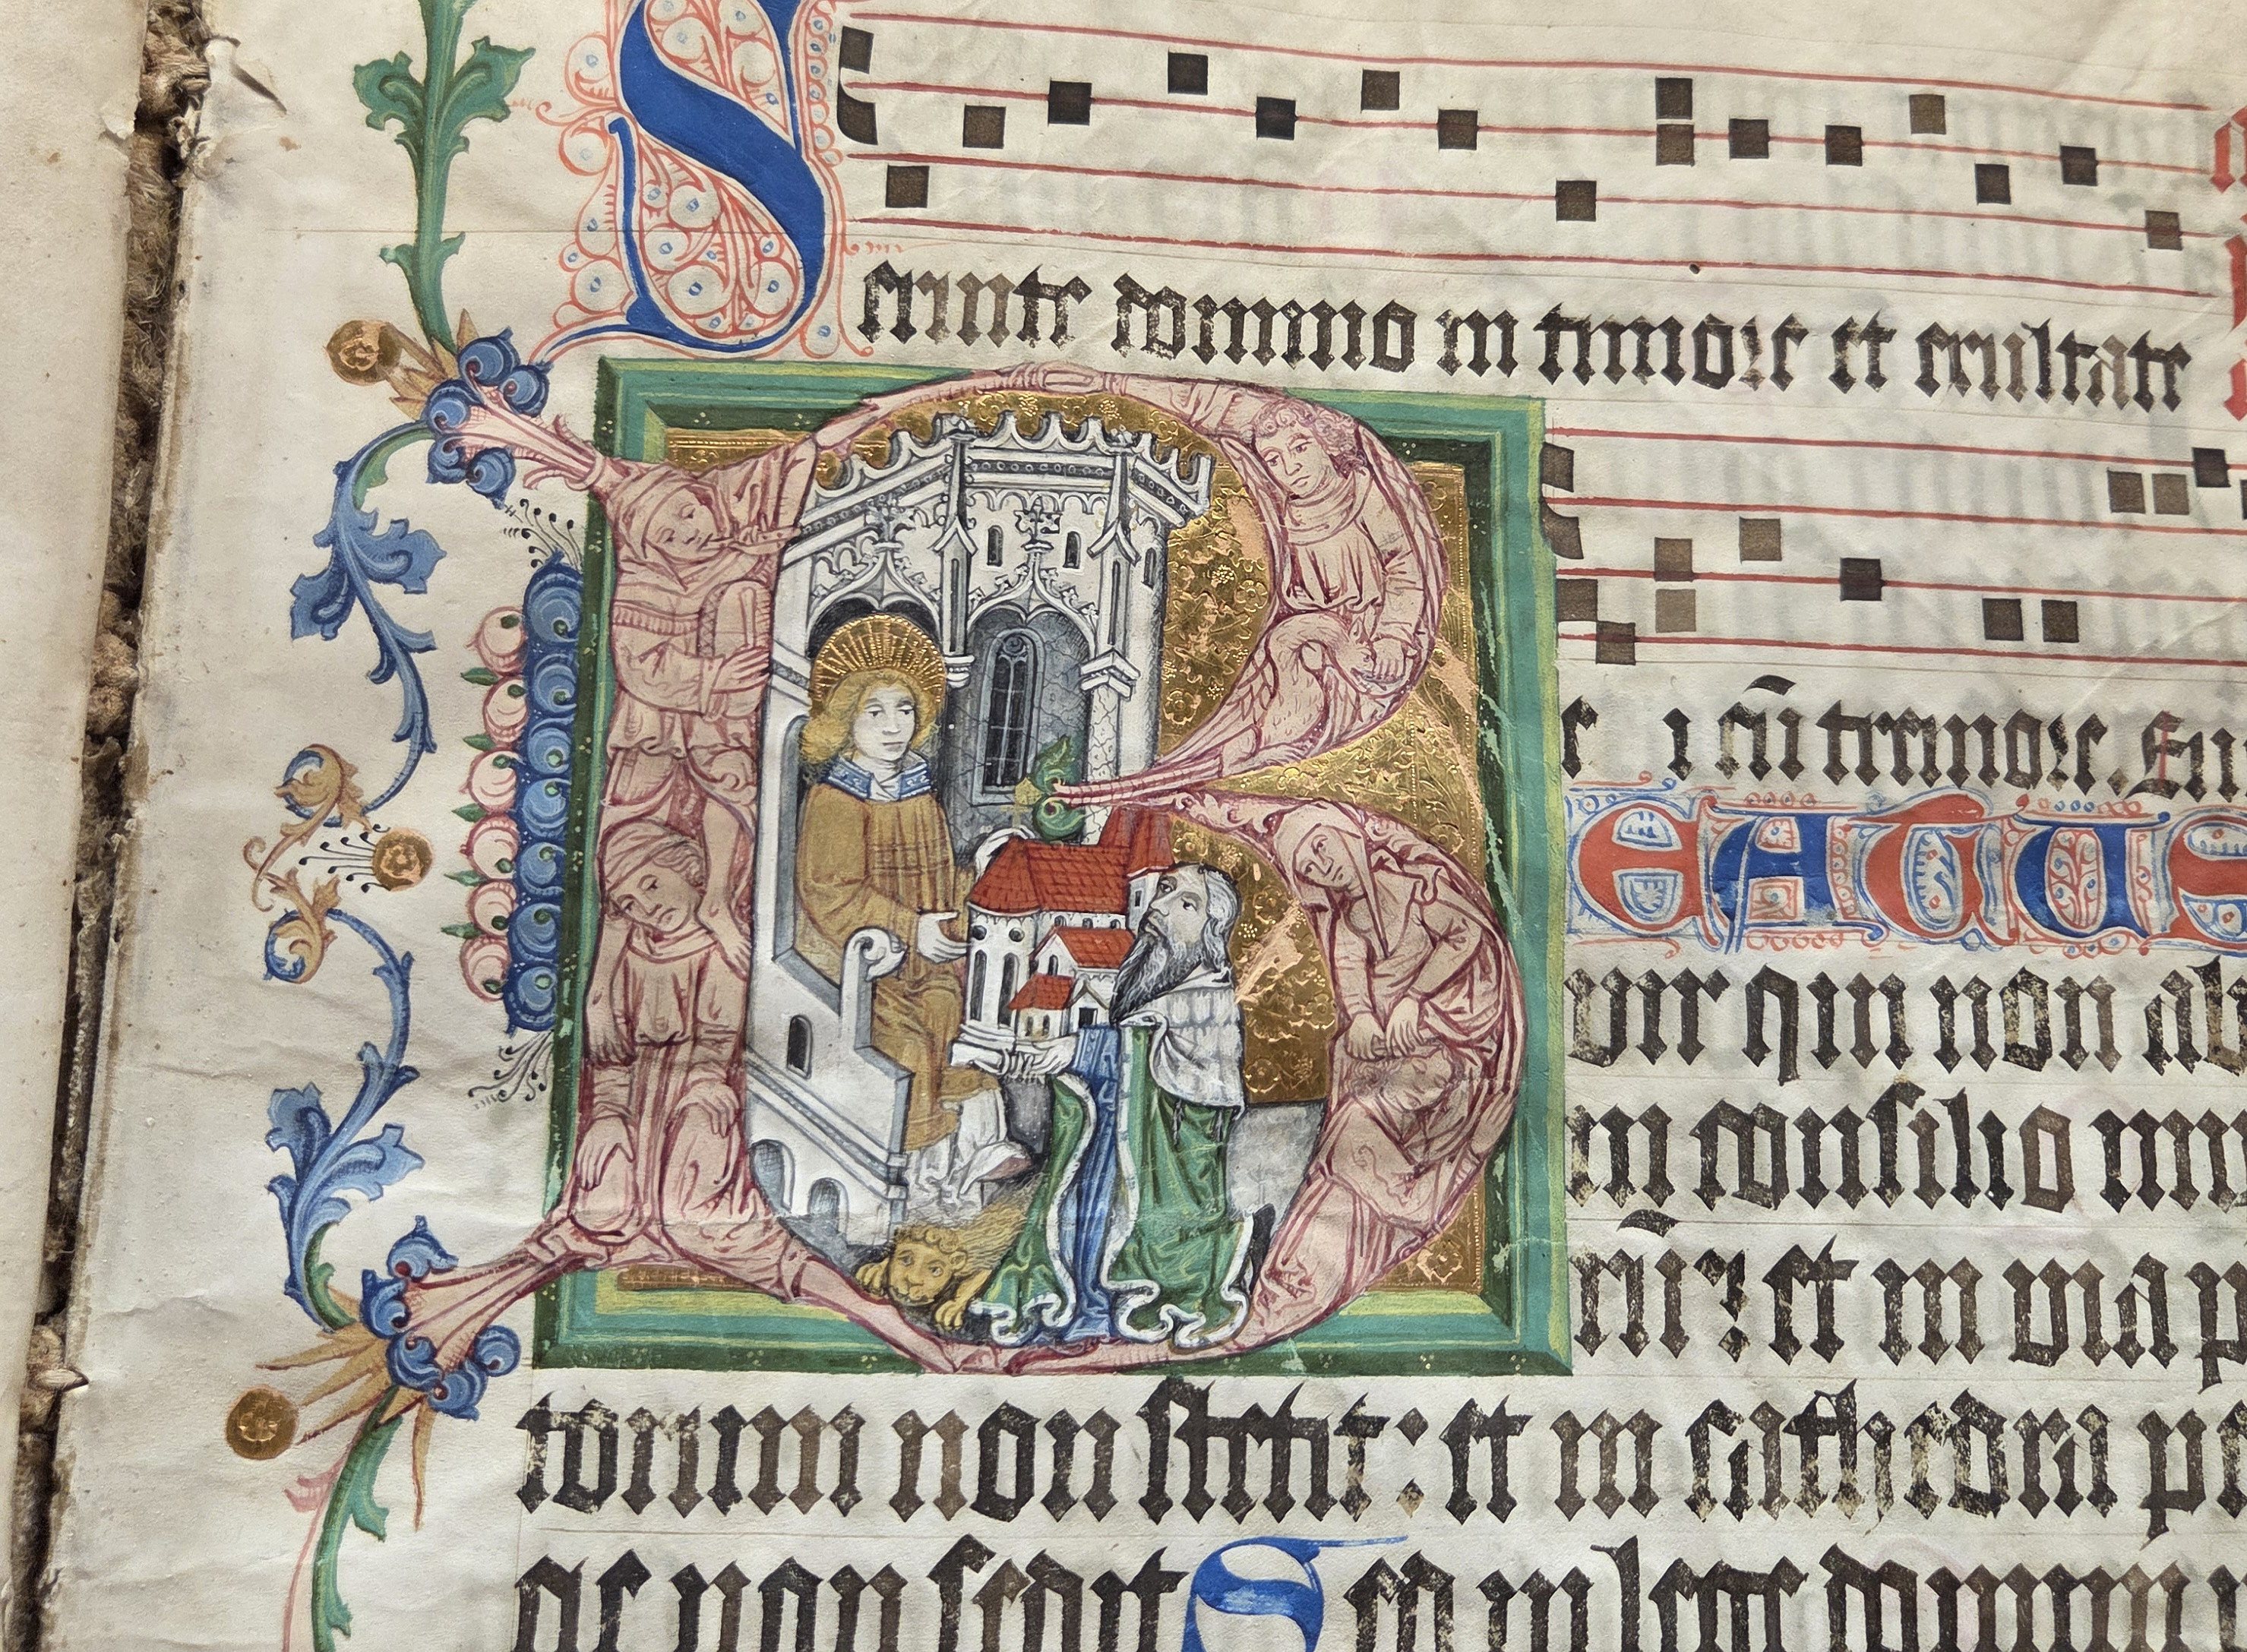 Seruite domino in timore et exultate
e i cu̅ tremore. Eu
BEATUS
uir qui non ab
in consilio im
riu̅ꝫ et in uia p
torum non stetit: et in cathedra pe
ac non sedit Sed in lege domini